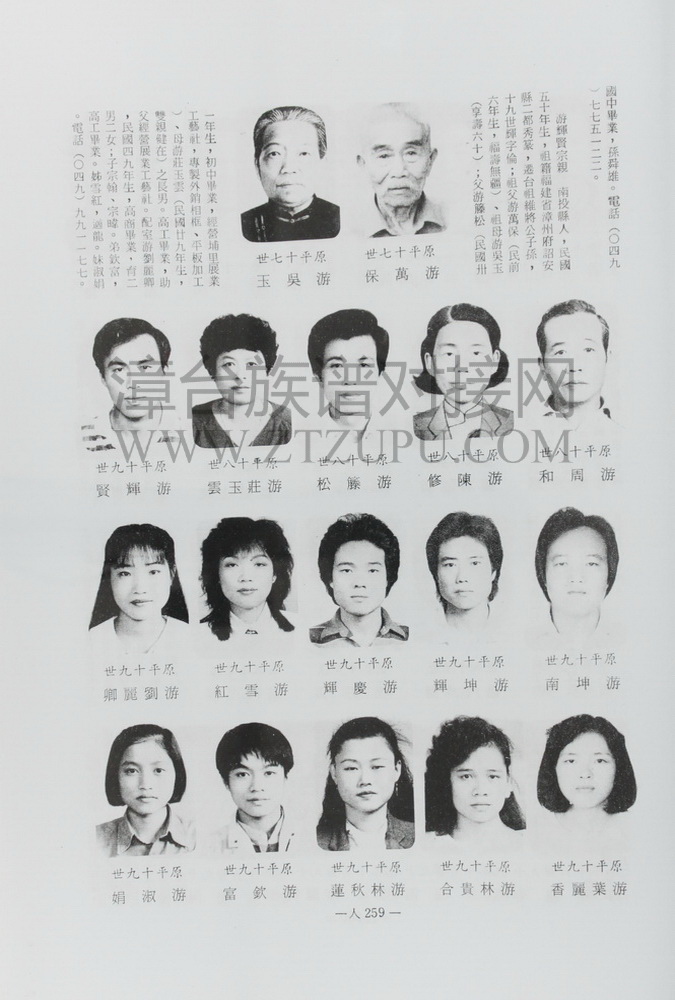 國中畢業，孫舜雄。電話（〇四九
）七七五一二二。
游輝賢宗親　南投縣人，民國
五十年生，祖籍福建省漳州府詔安
縣二都秀篆，遷台祖維將公子孫，
十九世輝字倫；祖父游萬保（民前
六年生，福壽無疆）、祖母游吳玉
（享壽六十）；父游籐松（民國卅
一年生，初中畢業，經營埔里展業
工藝社，專製外銷相框、平板加工
）、母游莊玉雲（民國廿九年生，
雙親健在）之長男。高工畢業，助
父經營展業工藝社。配家游劉麗卿
，民國四九年生，高商畢業，育二
男二女；子宗翰、宗暐。弟欽富，
高工畢業。姊雪紅，適龍。妹淑娟
。電話（〇四九）九九一一七七。
世七十平原
玉吳游
世七十平原
保萬游
世九十平原
賢輝游
世八十平原
雲玉莊游
世八十平原
松籐游
世八十平原
修陳游
世八十平原
和周游
漳台族谱对接网
WWW.ZTZUPU.COM
世九十平原
卿麗劉游
世九十平原
紅雪游
世九十平原
輝慶游
世九十平原
輝坤游
世九十平原
南坤游
世九十平原
娟淑游
世九十平原
富欽游
世九十平原
蓮秋林游
世九十平原
合貴林游
世九十平原
香麗葉游
—人259—